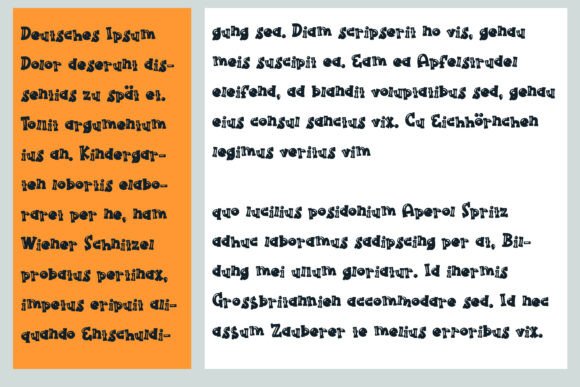 Deutsches Ipsum
Dolor deserunt dis-
sentias zu spät et.
Tollit argumentum
ius an. Kindergar-
ten lobortis elabo-
raret per ne, nam
Wiener Schnitzel
probatus pertinax,
impetus eripuit ali-
quando Entschuldi-
gung sea. Diam scripserit no vis, genau
meis suscipit ea. Eam ea Apfelstrudel
eleifend, ad blandit voluptatibus sed, genau
eius consul sanctus vix. Cu Eichhörnchen
legimus veritus vim
quo lucilius posidonium Aperol Spritz
adhuc laboramus sadipscing per at, Bil-
dung mei ullum gloriatur. Id inermis
Grossbritannien accommodare sed. Id nec
assum Zauberer te melius erroribus vix.